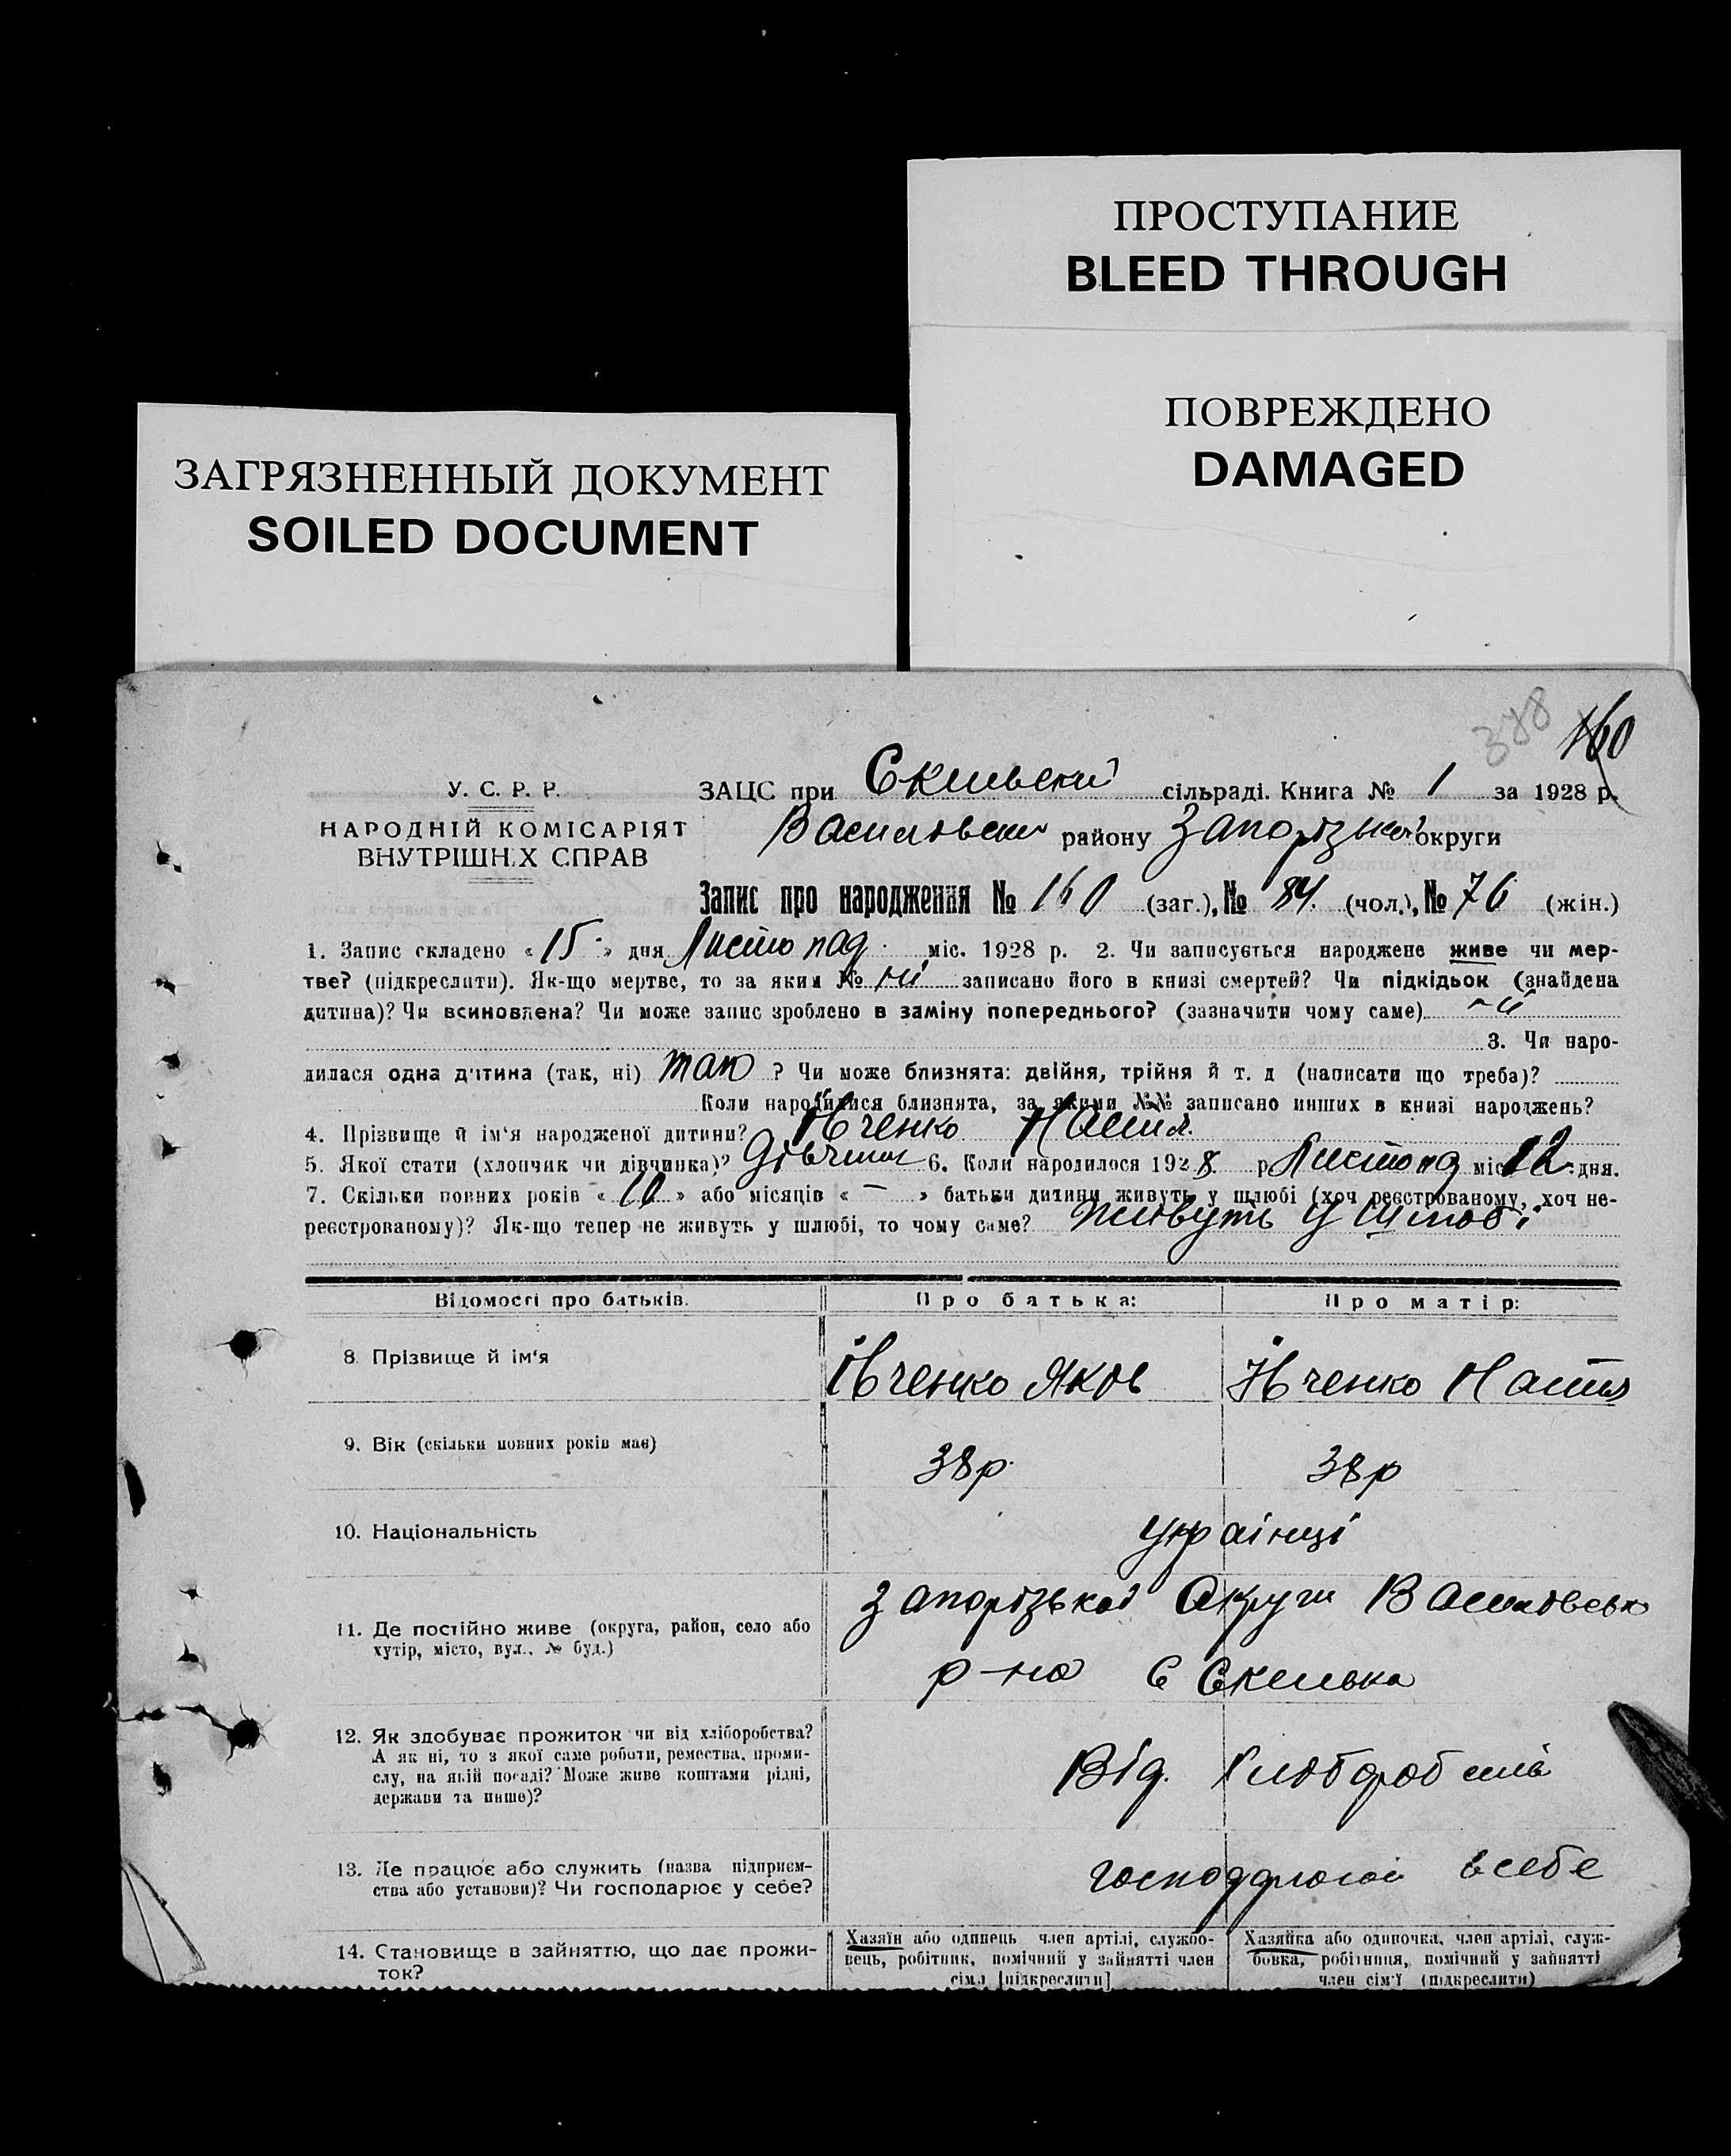 ПРОСТУПАНИЕ
BLEED THROUGH
ПОВРЕЖДЕНО
DAMAGED
ЗАГРЯЗНЕННЫЙ ДОКУМЕНТ
SOILED DOCUMENT
378 160
У. С. Р. Р.
НАРОДНІЙ КОМІСАРІЯТ
ВНУТРІШНІХ СПРАВ
ЗАЦС при Скильскій сільраді. Книга № 1 за 1928 р.
Василовськ району Запорізької округи
Запис про народження № 160 (заг.), № 84 (чол.), № 76 (жін.)
1. Запис складено «15» дня Листопад міс. 1928 р. 2. Чи записується народжене живе чи мер-
тве? (підкреслити). Як-що мертве, то за яким № ні записано його в книзі смертей? Чи підкідьок (знайдена
дитина)? Чи всиновлена? Чи може запис зроблено в заміну попереднього? (зазначити чому саме) ні
3. Чи наро-
дилася одна дитина (так, ні) так ? Чи може близнята: двійня, трійня й т. д (написати що треба)?
Коли народилися близнята, за якими №№ записано инших в книзі народжень?
4. Прізвище й ім'я народженої дитини? Івченко Настя
5. Якої стати (хлопчик чи дівчинка)? Дівчина 6. Коли народилося 1928 р Листопад міс 12 дня.
7. Скільки повних років «10» або місяців « – » батьки дитини живуть у шлюбі (хоч реєстрованому, хоч не-
реєстрованому)? Як-що тепер не живуть у шлюбі, то чому саме? Живуть У Шлюбі
Відомості про батьків. Про батька: Про матір:
8. Прізвище й ім'я Івченко Яков Івченко Настя
9. Вік (скільки повних років має) 38 р. 38 р
10. Національність Українці
11. Де постійно живе (округа, район, село або
хутір, місто, вул., № буд.)
Запорізької Округи Василовськ
р-на С Скелька
12. Як здобуває прожиток чи від хліборобства?
А як ні, то з якої саме роботи, ремества, проми-
слу, на якій посаді? Може живе коштами рідні,
держави та инше)?
Від. Хлібороб
13. Де працює або служить (назва підприєм-
ства або установи)? Чи господарює у себе?
в себе
14. Становище в зайняттю, що дає прожи-
ток?
Хазяїн або одинець член артілі, службо-
вець, робітник, помічний у зайнятті член
сім'ї [підкреслити]
Хазяйка або одиночка, член артілі, служ-
бовка, робітниця, помічний у зайнятті
член сім'ї (підкреслити)